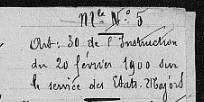 Mle N° 5
Art. 30 de l'Instruction
du 20 février 1900 sur
le service des Etats-Majors